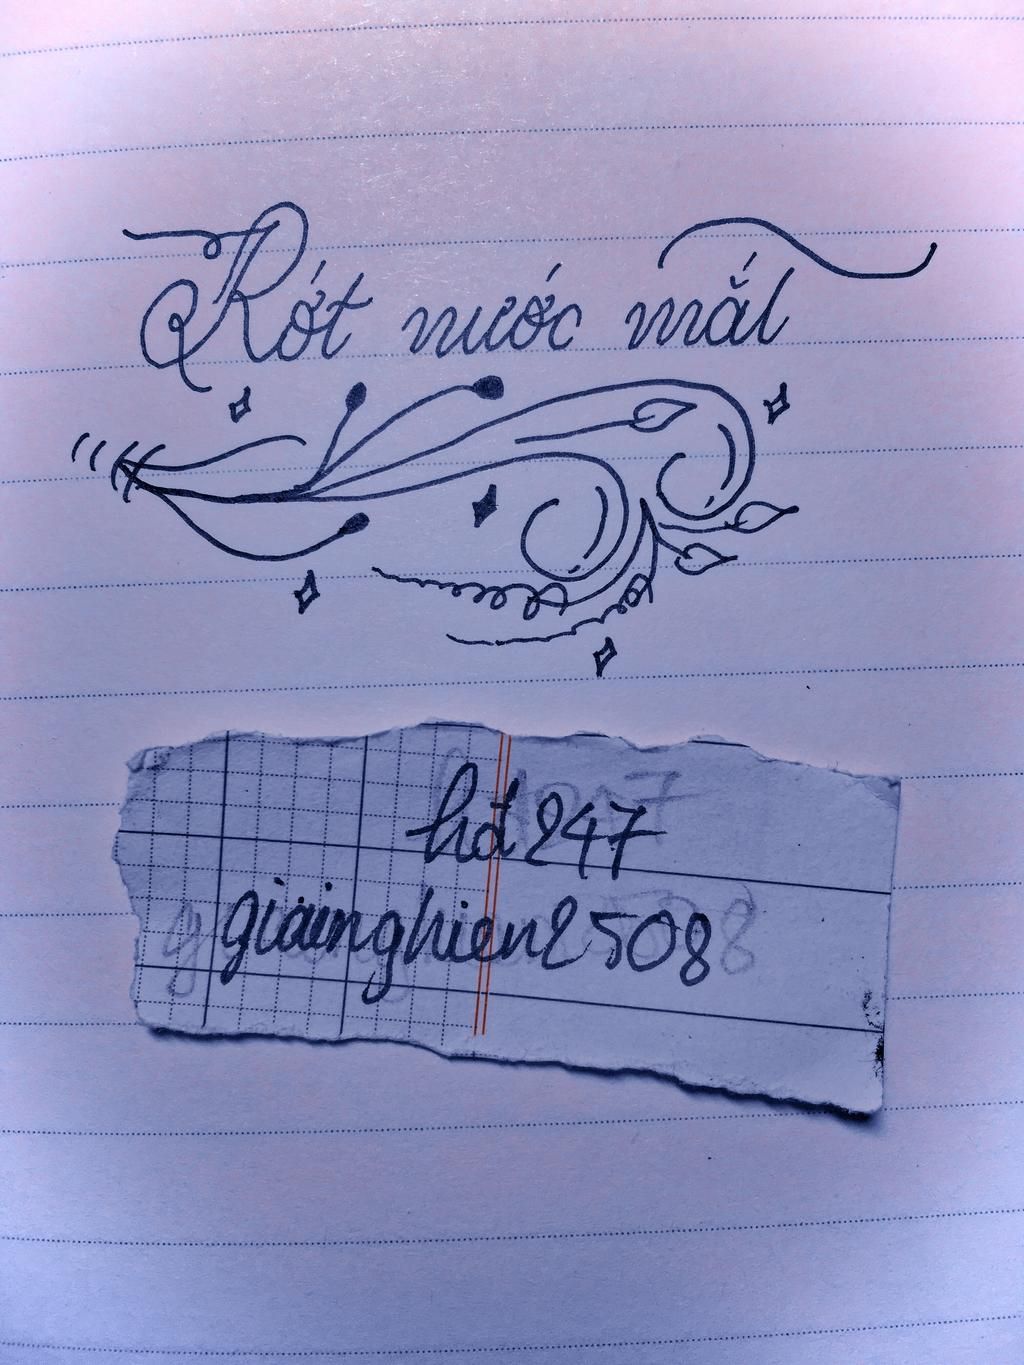 Rớt nước mắt
hđ247
giảinghien2508